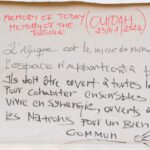 MEMORY OF TODAY
MEMORY OF THE
FUTURE
(OUIDAH
23/01/2022)
L'Afrique est le miroir du Monde
L'espace n'appartient à p
Ils doit être ouvert à toutes l
Pour cohabiter ensembles
Vivre en Synergie, ouverts à
les Nations pour un Bien
Commun